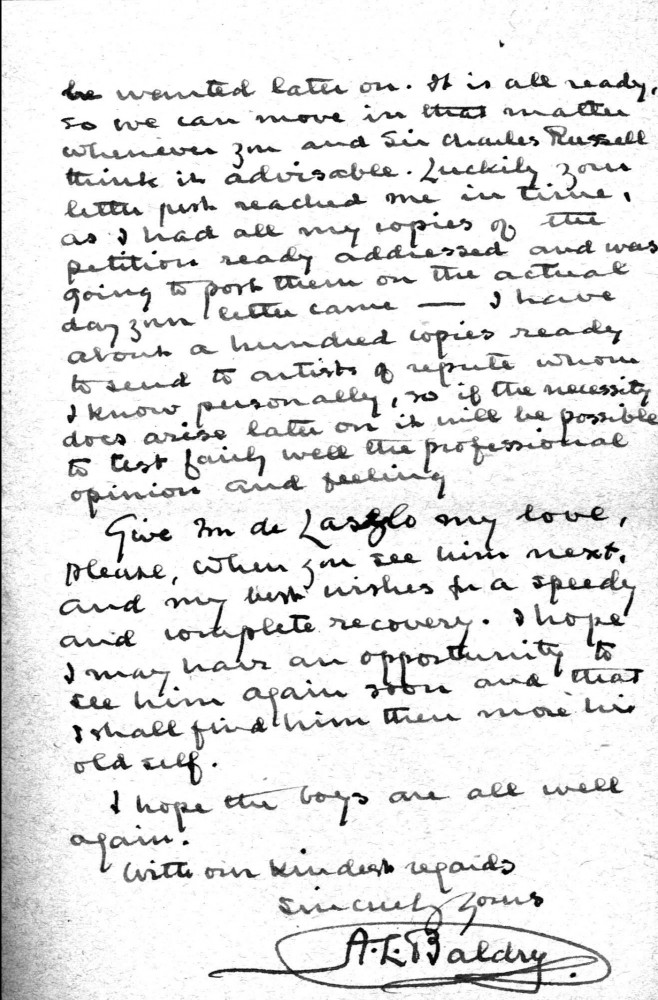 be wanted later on. It is all ready,
so we can move in that matter
whenever you and Sir Charles Russell
think it advisable. Luckily your
letter just reached me in time,
as I had all my copies of the
petition ready addressed and was
going to post them on the actual
day your letter came — I have
about a hundred copies ready
to send to artists of repute whom
I know personally, so if the necessity
does arise later on it will be possible
to test fairly well the professional
opinion and feeling
Give Mr de Laszlo my love,
please, when you see him next,
and my best wishes for a speedy
and complete recovery. I hope
I may have an opportunity to
see him again soon and that
I shall find him then more his
old self.
I hope the boys are all well
again.
With our kindest regards
Sincerely yours
A. L. Baldry.